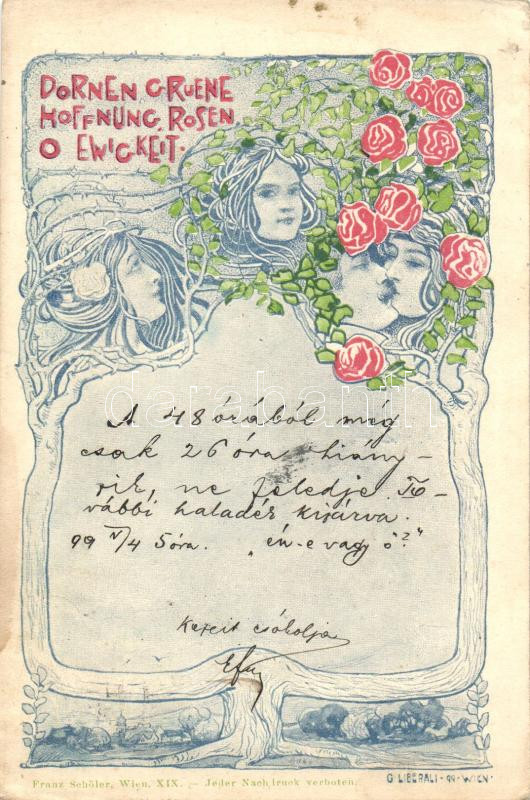 DORNEN GRUENE
HOFFNUNG, ROSEN
O EWIGKEIT.
darabanth
A 48 órából még
csak 26 óra hiány-
zik, ne feledje. To-
vábbi haladék kizárva.
99 V/4 5 óra. „én-e vagy ő?"
Kezeit csókolja
Franz Schöler, Wien, XIX. — Jeder Nachdruck verboten.
G. LIBERALI · 99 · WIEN